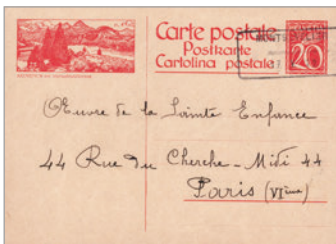 Carte postale
Postkarte
Cartolina postale
20
Œuvre de la Sainte Enfance
44 Rue du Cherche-Midi 44
Paris (VIème)